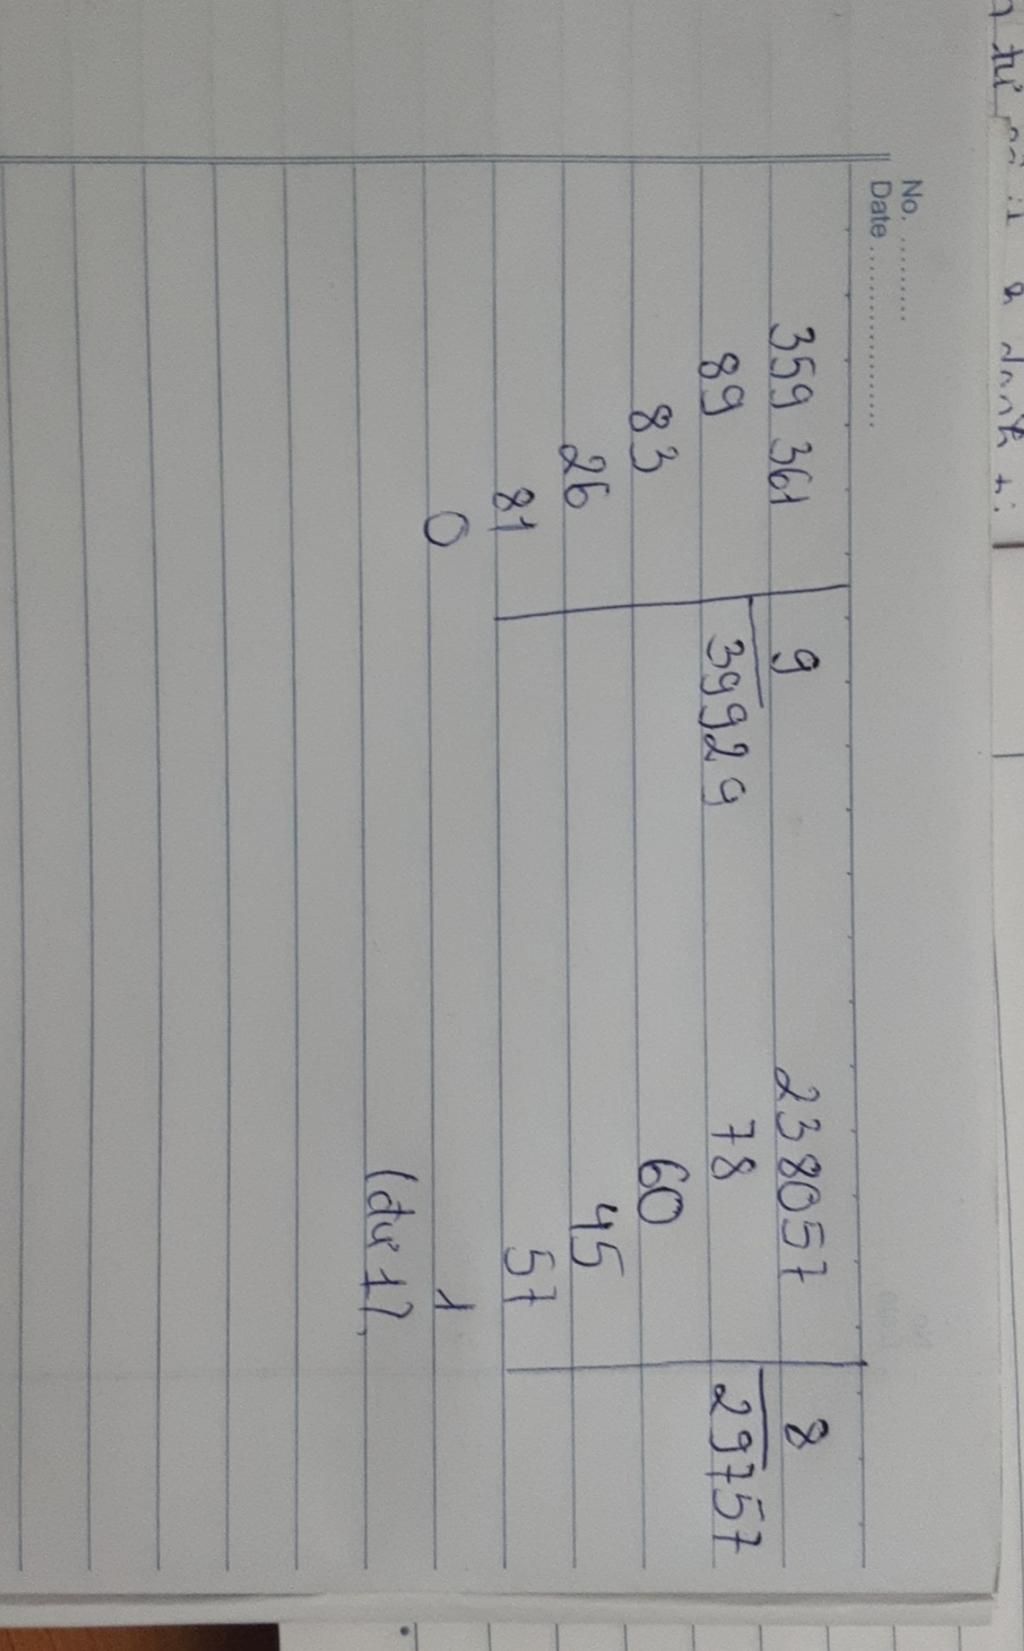 No. .........
Date ..................
359 361 9 238057 8
89 39929 78 29757
83 60
26 45
81 57
0 1
(dư 1).